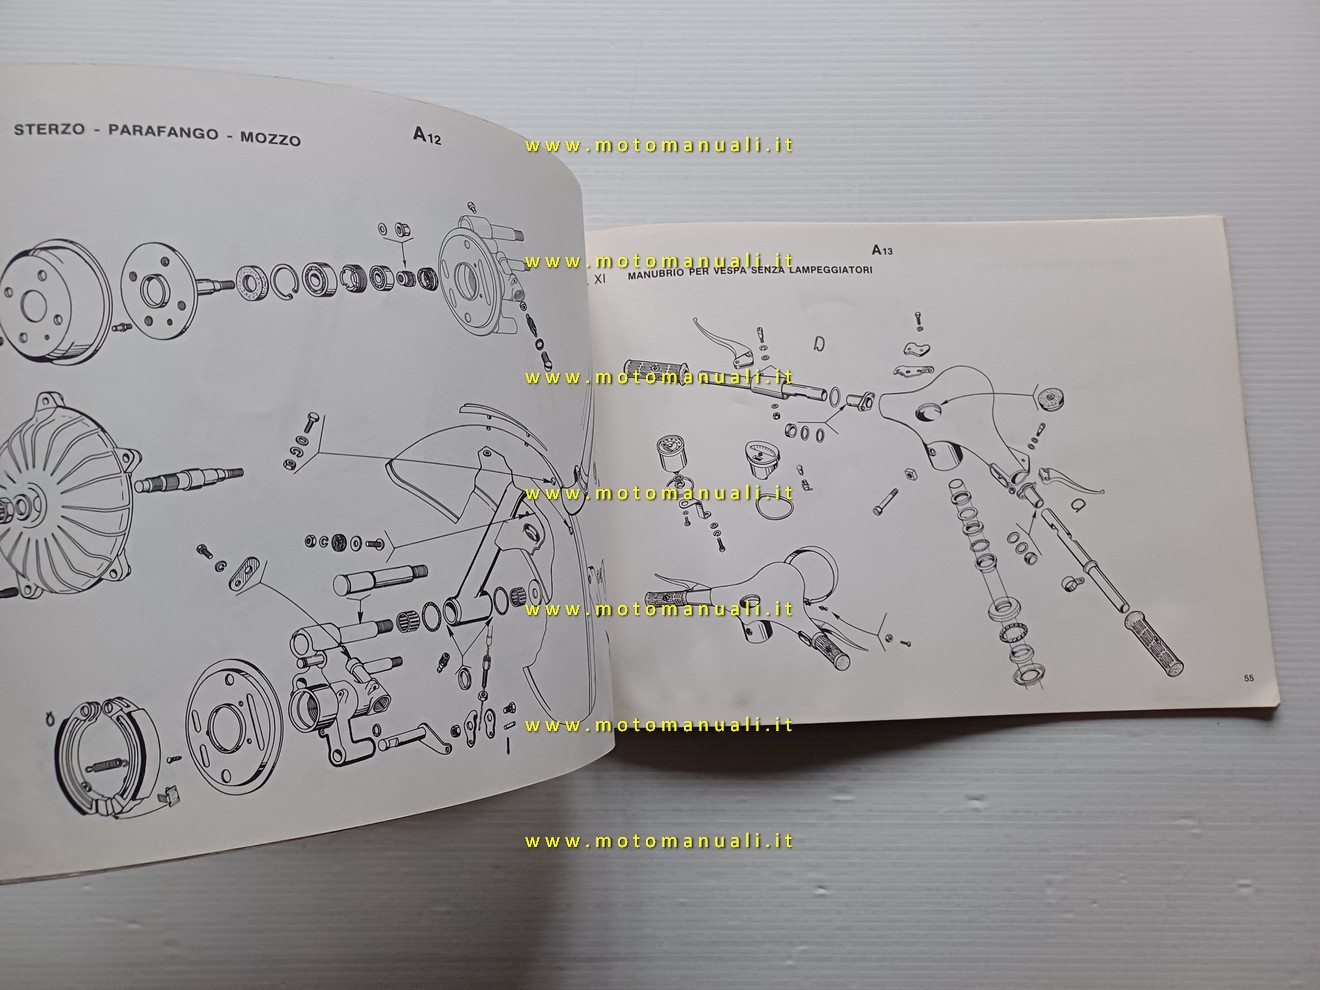 STERZO - PARAFANGO - MOZZO
A12
A13
XI
MANUBRIO PER VESPA SENZA LAMPEGGIATORI
55
www.motomanuali.it
www.motomanuali.it
www.motomanuali.it
www.motomanuali.it
www.motomanuali.it
www.motomanuali.it
www.motomanuali.it